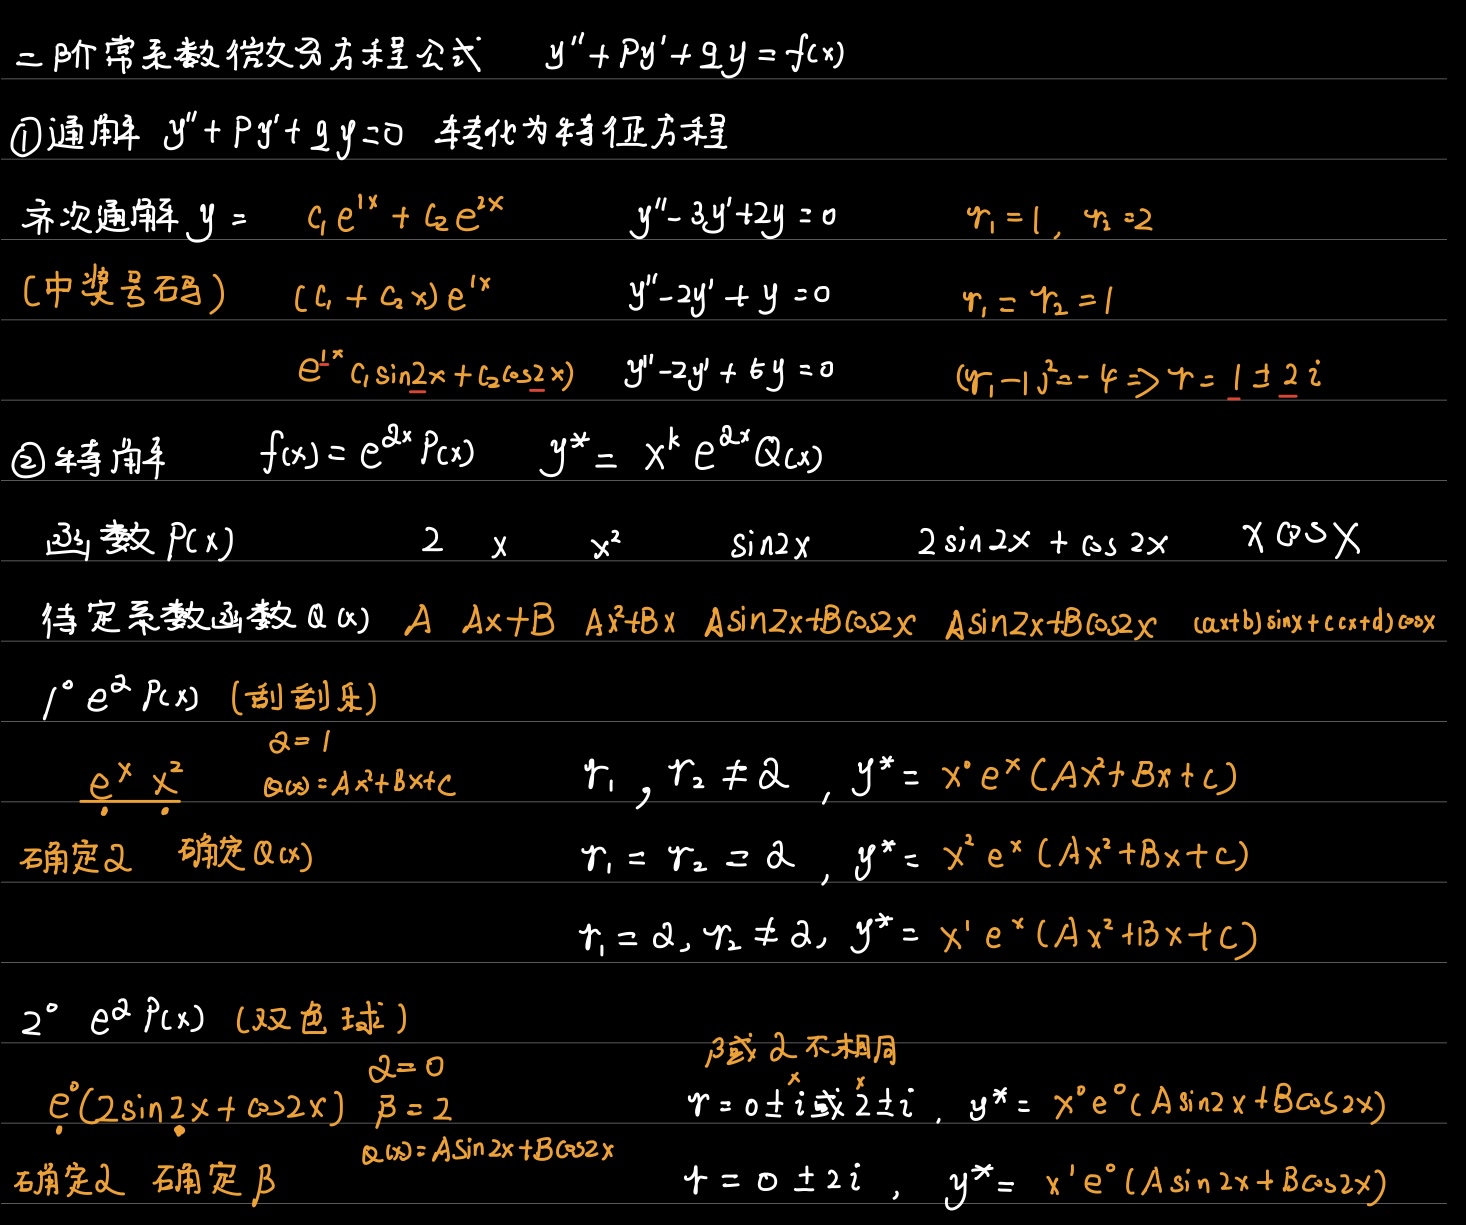 二阶常系数微分方程公式 y''+Py'+qy=f(x)
①通解 y''+Py'+qy=0 转化为特征方程
齐次通解 y= C₁e^{1x}+C₂e^{2x} y''-3y'+2y=0 r₁=1, r₂=2
(中奖号码) (C₁+C₂x)e^{1x} y''-2y'+y=0 r₁=r₂=1
e^{1x} C₁sin2x+C₂cos2x) y''-2y'+5y=0 (r₁-1)²=-4 => r=1±2i
②特解 f(x)=e^{αx}P(x) y*=x^k e^{αx}Q(x)
函数P(x) 2 x x² sin2x 2sin2x+cos2x xcosx
待定系数函数Q(x) A Ax+B Ax²+Bx Asin2x+Bcos2x Asin2x+Bcos2x (ax+b)sinx+(cx+d)cosx
1° e^α P(x) (刮刮乐)
α=1
e^x x² Q(x)=Ax²+Bx+C r₁, r₂≠α, y*=x⁰e^x(Ax²+Bx+C)
确定α 确定Q(x) r₁=r₂=α, y*=x²e^x(Ax²+Bx+C)
r₁=α, r₂≠α, y*=x¹e^x(Ax²+Bx+C)
2° e^α P(x) (双色球)
α=0 β或α不相同
e⁰(2sin2x+cos2x) β=2 r=0±i或2±i, y*=x⁰e⁰(Asin2x+Bcos2x)
Q(x)=Asin2x+Bcos2x
确定α 确定β r=0±2i, y*=x¹e⁰(Asin2x+Bcos2x)